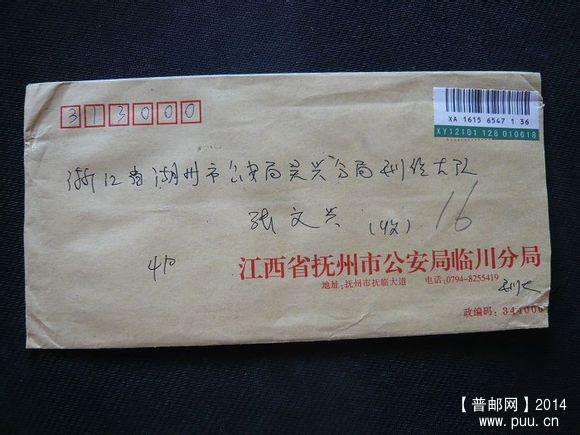 313000
XA 1615 6547 1 36
XY12101 128 010618
浙江省湖州市公安局吴兴分局刑侦大队
张文兴 (收)
16
江西省抚州市公安局临川分局
地址:抚州市抚临大道 电话:0794-8255419
政编码:344000
【普邮网】2014
www.puu.cn